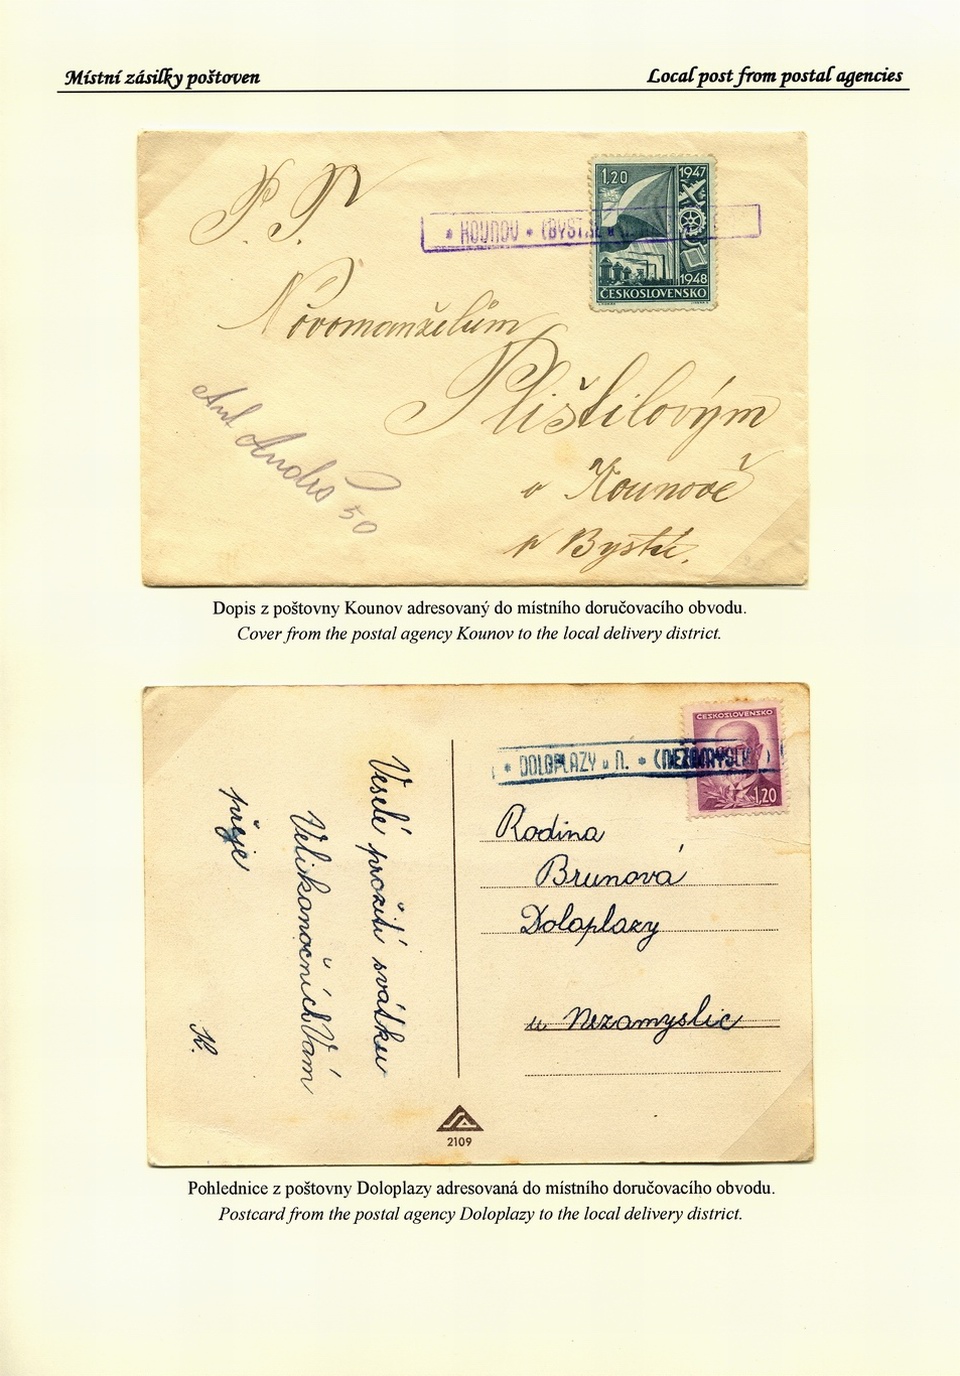 Místní zásilky poštoven
Local post from postal agencies
P. P.
* KOUNOV * (BYST
1,20
1947
1948
ČESKOSLOVENSKO
Novomanželům
Plištilovým
v Kounově
p Bystré.
Ant
50
Dopis z poštovny Kounov adresovaný do místního doručovacího obvodu.
Cover from the postal agency Kounov to the local delivery district.
ČESKOSLOVENSKO
1,20
* DOLOPLAZY u N. * (NEZAMYSLICE)
Rodina
Brunová
Doloplazy
u Nezamyslic
Veselé prožití svátku
Velikanočních Vám
přeje
K.
2109
Pohlednice z poštovny Doloplazy adresovaná do místního doručovacího obvodu.
Postcard from the postal agency Doloplazy to the local delivery district.